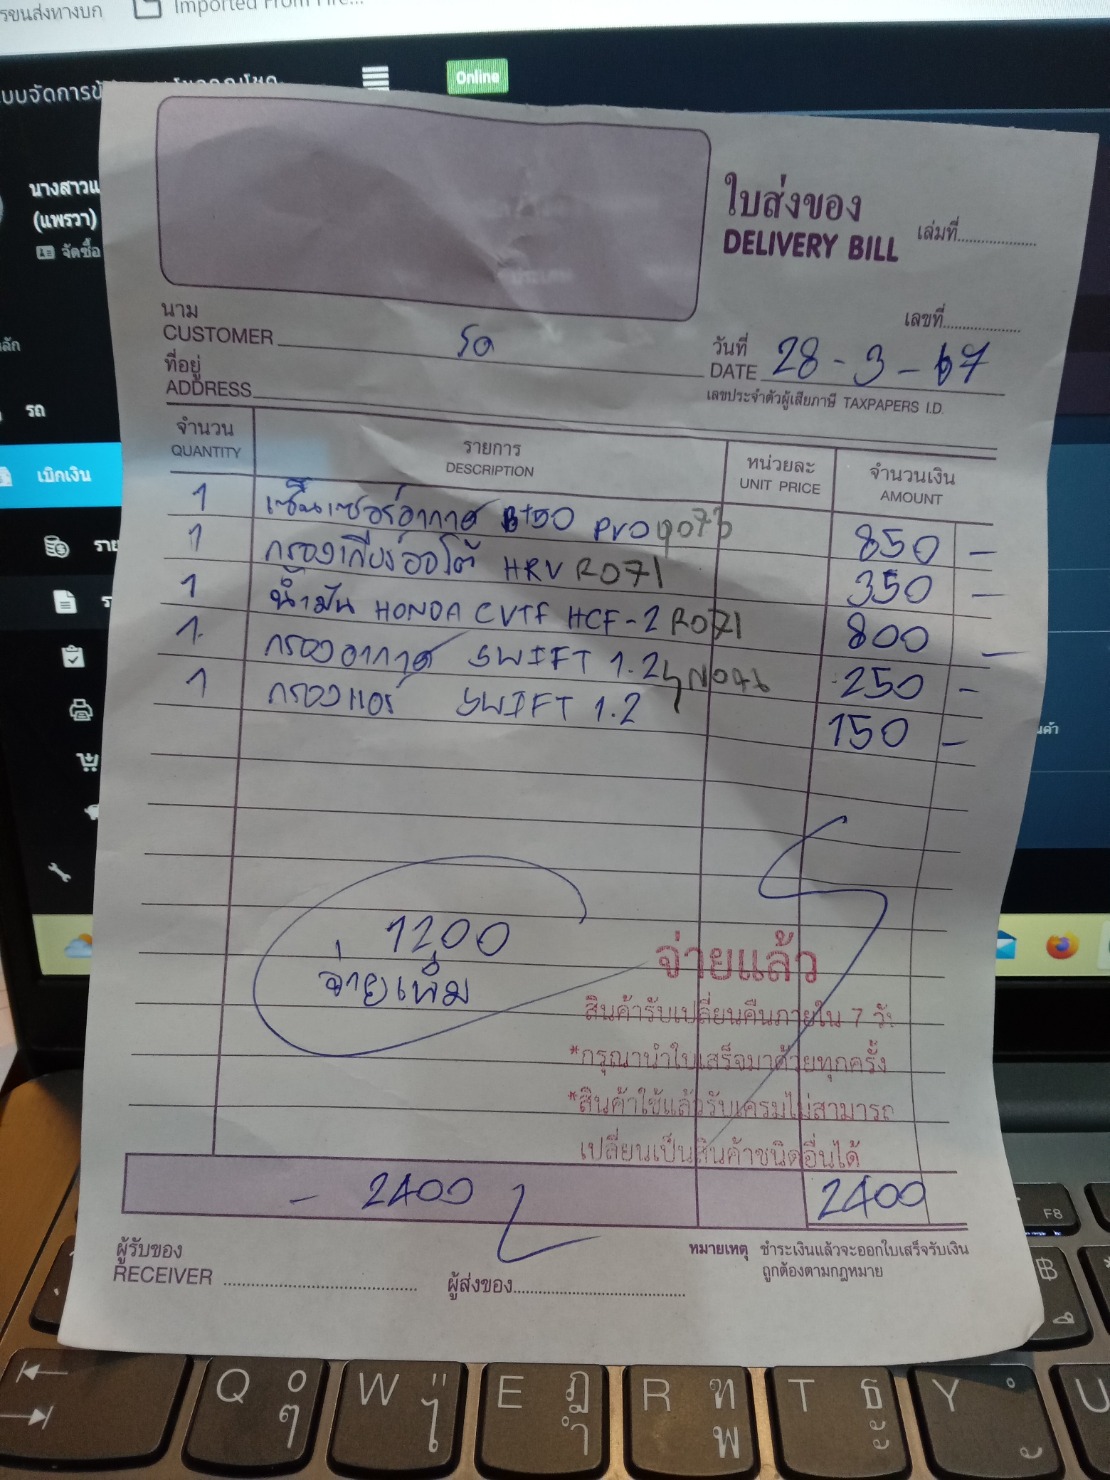 รขนส่งทางบก
Imported From Fire...
บบจัดการข้
Online
นางสาวแ
(แพรวา)
จัดซื้อ
ลัก
รถ
เบิกเงิน
ราย
ร
นค้า
ใบส่งของ
DELIVERY BILL
เล่มที่
เลขที่
นาม
CUSTOMER รถ
วันที่
DATE 28-3-67
ที่อยู่
ADDRESS
เลขประจำตัวผู้เสียภาษี TAXPAPERS I.D.
จำนวน รายการ หน่วยละ จำนวนเงิน
QUANTITY DESCRIPTION UNIT PRICE AMOUNT
1 เซ็นเซอร์อากาศ BT50 PRO 850 -
1 กรองเกียร์ออโต้ HRV R071 350 -
1 น้ำมัน HONDA CVTF HCF-2 R071 800 -
1 กรองอากาศ SWIFT 1.2 250 -
1 กรองแอร์ SWIFT 1.2 150 -
1200
จ่ายเพิ่ม
จ่ายแล้ว
สินค้ารับเปลี่ยนคืนภายใน 7 วั
*กรุณานำใบเสร็จมาด้วยทุกครั้ง
*สินค้าใช้แล้วรับเครมไม่สามารถ
เปลี่ยนเป็นสินค้าชนิดอื่นได้
- 2400 2400
ผู้รับของ
RECEIVER
ผู้ส่งของ
หมายเหตุ ชำระเงินแล้วจะออกใบเสร็จรับเงิน
ถูกต้องตามกฎหมาย
F8
฿
Q ๐ ๆ
W " ไ
E ฎ ำ
R ฑ พ
T ธ ะ
Y
U